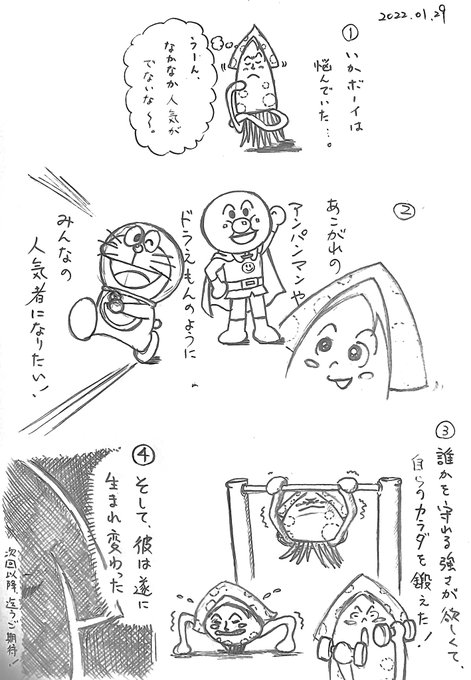 2022.01.29
①
いかボーイは
悩んでいた…。
うーん、
なかなか人気が
でないな〜。
②
あこがれの
アンパンマンや
ドラえもんのように
みんなの
人気者になりたい!
③
誰かを守れる強さが欲しくて、
自らのカラダを鍛えた!
④
そして、彼は遂に
生まれ変わった
次回以降、迄、ご期待!